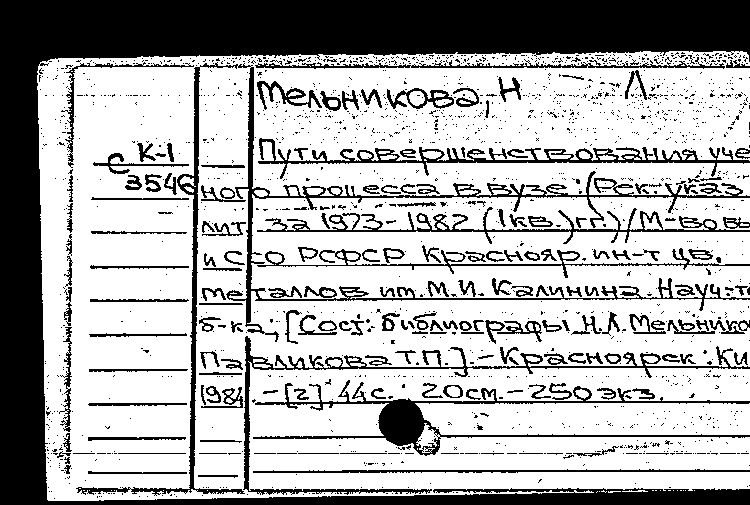 Мельникова, Н Л
К-1
С 3546
Пути совершенствования уче
ного процесса в вузе: (Рек. указ.
лит. за 1973-1982 (1кв.) гг.) / М-во вы
и ССО РСФСР, Краснояр. ин-т цв.
металлов им. М.И. Калинина. Науч.-те
б-ка; [Сост.: библиографы Н.Л. Мельнико
Павликова Т.П.]. - Красноярск: Ки
1984. - [2], 44 с.; 20 см. - 250 экз.